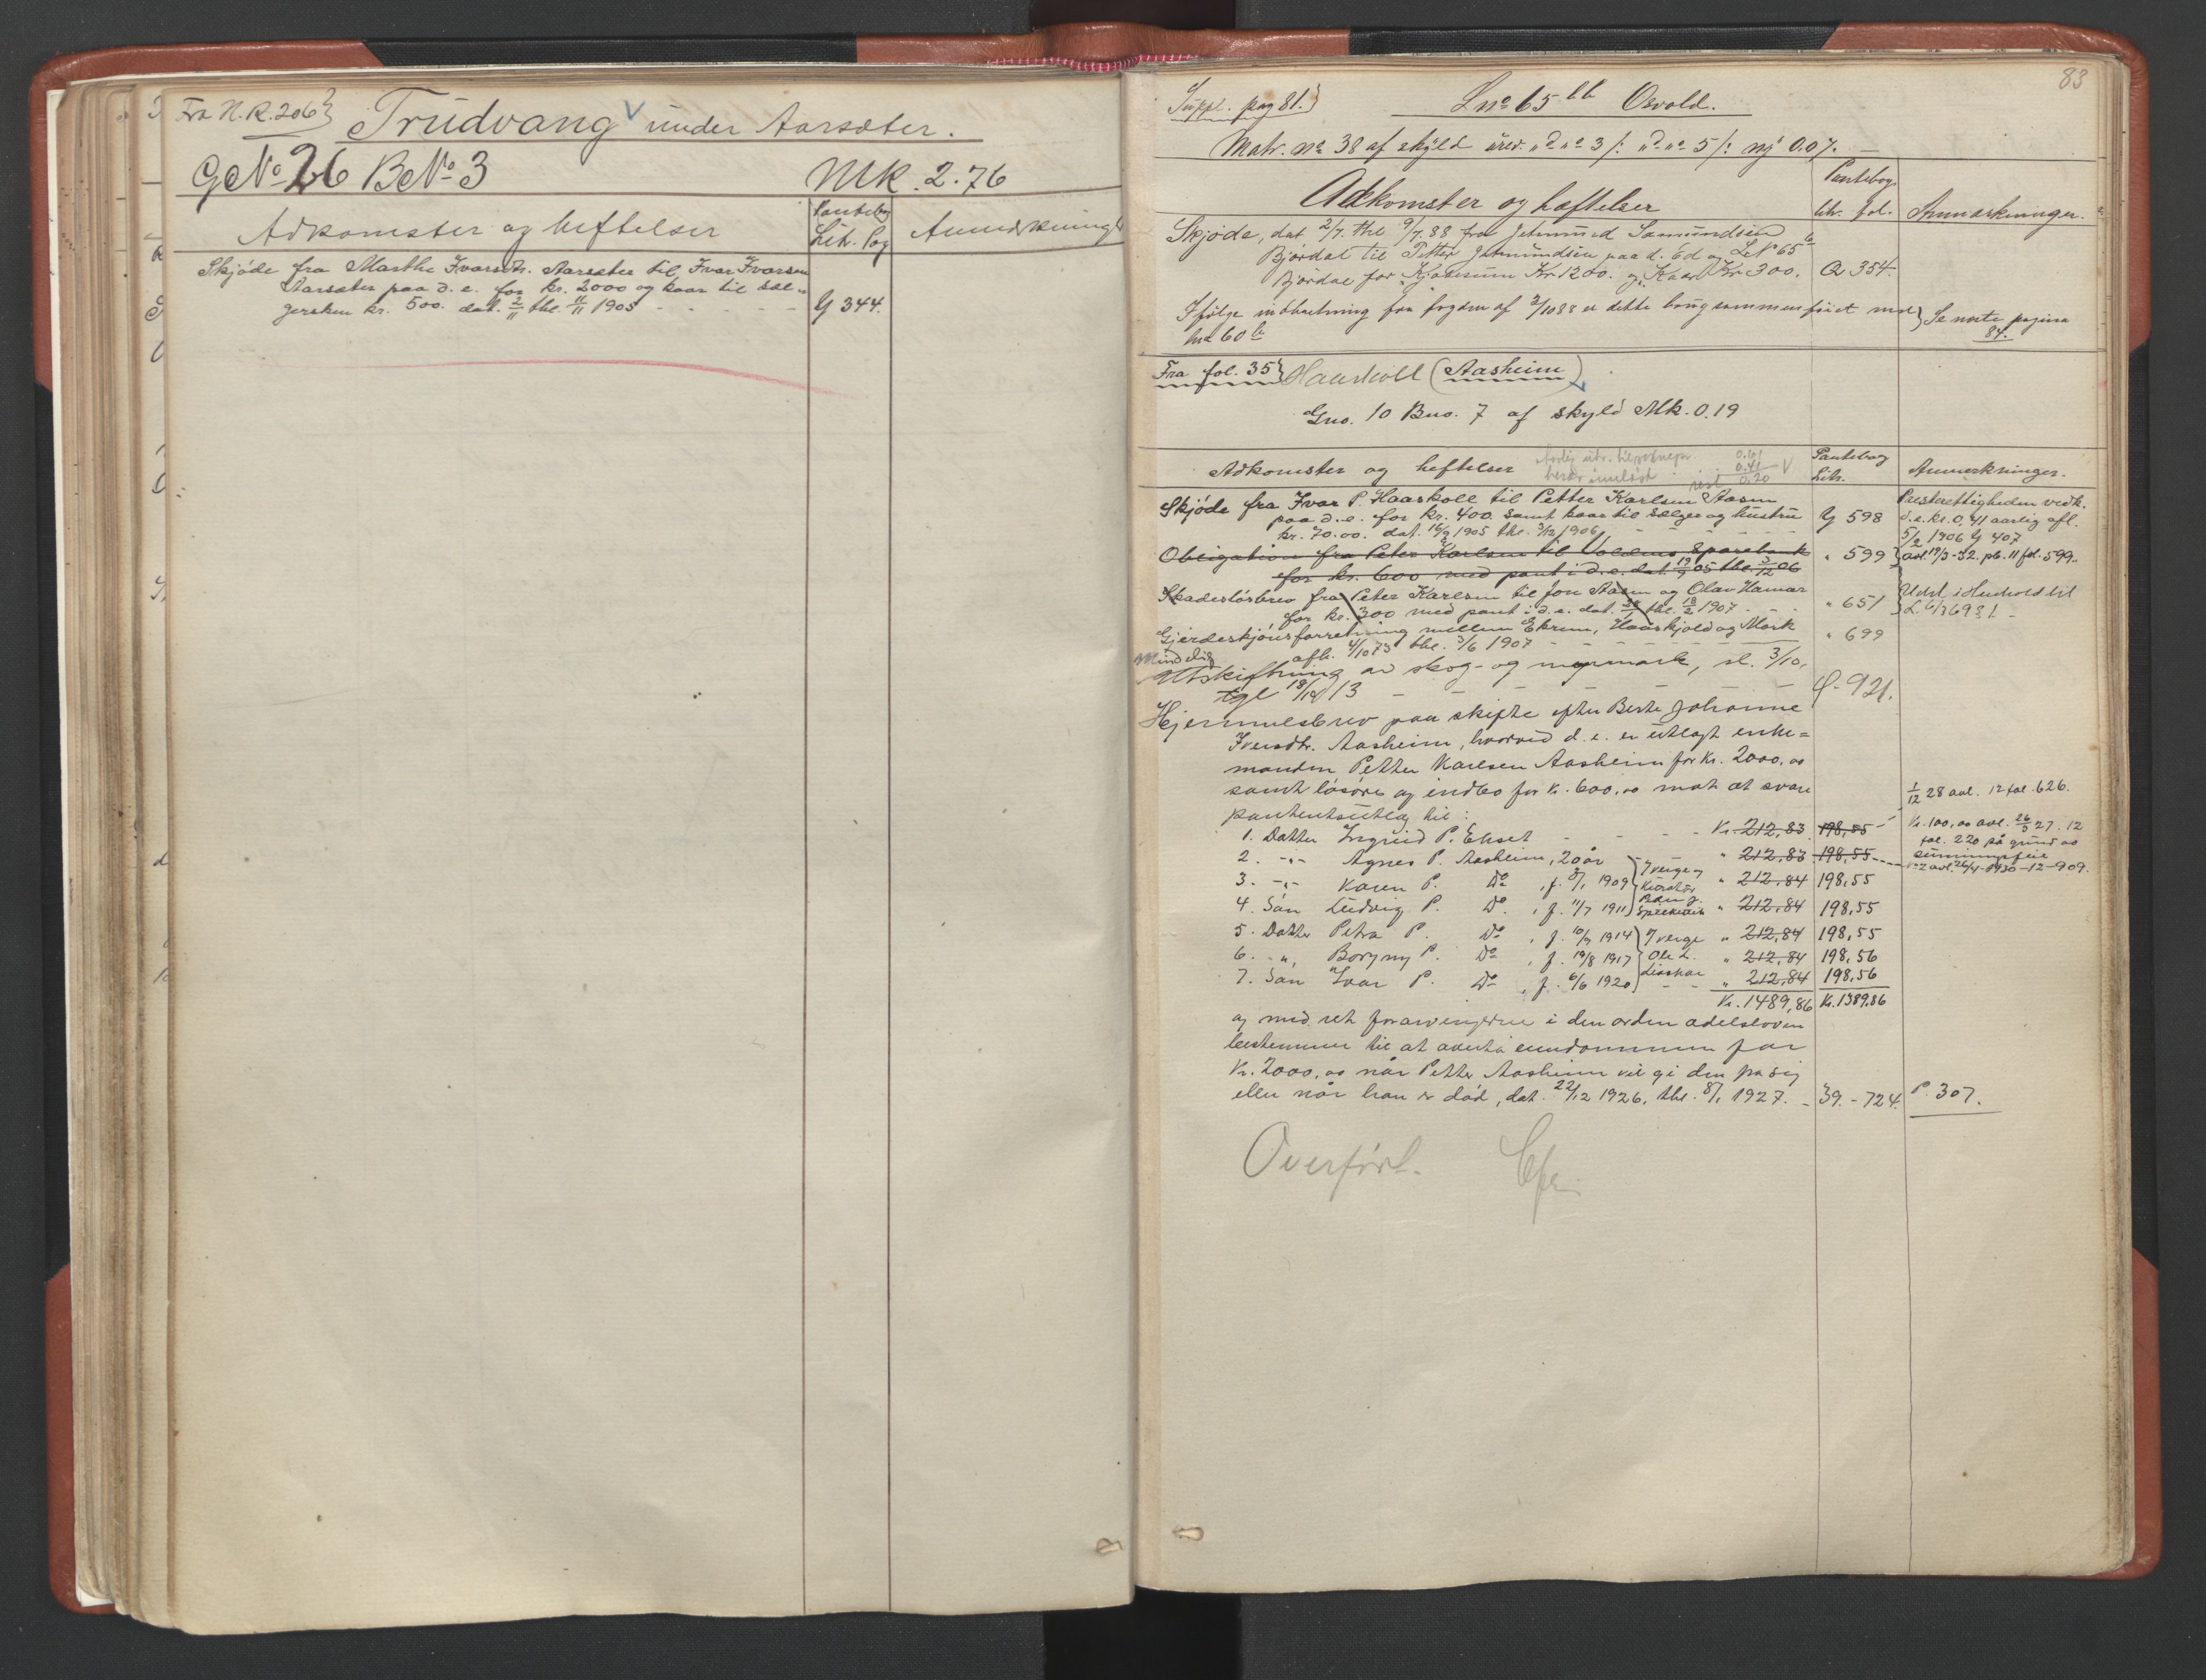 Fra N.R. 206
Trudvang under Aarsæter.
GNo 26 BNo 3 Mk. 2.76
Adkomster og heftelser
Pantebog
Litr. Pag
Skjøde fra Marthe Ivarsdtr. Aarsæter til Ivar Ivarsen
Aarsæter paa d. e. for kr. 2000 og kaar til sæl-
gersken kr. 500. dat. 2/11 thl. 11/11 1905 - - - - Y 344.
83
Suppl. pag 81.
Lno 65 bb Osvold.
Matr. no 38 af skyld ured. " d " o 3 /: " d " o 5 /: ny 0.07.
Adkomster og hæftelser
Pantebog
litr. fol.
Anmærkninger.
Skjøde, dat 2/7. thl 9/7. 88 fra Jetmund Samundsen
Bjørdal til Petter Jetmundsen paa d. Ed og LNo 65
Bjørdal for Kjøbesum Kr 1200. og Kaar Kr 300. Q 354.
Ifølge indberetning fra fogden af 2/10 88 er dette brug sammenføiet med
no 60 b
Se neste pagina
84.
Fra fol. 35 Haaskoll (Aasheim)
Gno. 10 Bno. 7 af skyld Mk. 0.19
Adkomster og heftelser
0.61
0.41
rest 0.20
Pantebog
Litr.
Anmerkninger.
Skjøde fra Ivar P. Haaskoll til Petter Karlsen Aasen
paa d.e. for kr. 400. samt kaar til sælger og hustru
kr. 70.00. dat. 16/9 1905 thl. 3/12 1906 Y 598
Prestrettigheden vedk.
d.e. kr. 0,41 aarlig afl.
5/2 1906 Y 407
Obligation fra Peter Karlsen til Voldens Sparebank
for kr. 600 med pant i d.e. dat. 19/9 05 thl. 3/12 06
" 599
avl. 19/3-32. pb. 11 fol. 599.
Skadesløsbrev fra Peter Karlsen til Jon Aasen og Olav Hamar
for kr. 300 med pant i d.e. dat. thl. 18/2 1907
" 651
Gjerdeskjønsforretning mellem Ekrem, Haaskjold og Mork
afh. 4/10 73 thl. 3/6 1907
" 699
Mindelig
Utskiftning av skog- og myrmark, sl. 3/10,
tgl 18/10 13 - - - - - 921.
Hjemmelsbrev paa skifte efter Berte Johanne
Iversdtr. Aasheim, hvorved d.e. er utlagt enke-
manden Petter Karlsen Aasheim for Kr. 2000,00
samt løsøre og indbo for kr. 600,00 mot at svare
panteutlæg til:
1/12 28 avl. 12 fol. 626.
1. Datter Ingrid P. Ekset - - - Kr. 212,83 198,55
Kr. 100,00 avl. 26/3 27. 12
fol. 220 på grund av
summingsfeil
2. -"- Agnes P. Aasheim, 20 år " 212,83 198,55
nr 2 avl. 26/4-1930-12-909.
3. -"- Karen P. Do , f. 8/1 1909 " 212,84 198,55
4. Søn Ludvig P. Do , f. 11/7 1911 " 212,84 198,55
5. Datter Petra P. Do , f. 10/7 1914 Verge " 212,84 198,55
6. -"- Borgny P. Do , f. 19/8 1917 Ole L. " 212,84 198,56
7. Søn Ivar P. Do , f. 6/6 1920 Lisskar " 212,84 198,56
Kr. 1489,86 Kr. 1389,86
og med ret for arvingerne i den orden odelsloven
bestemmer til at overta eiendommen for
Kr. 2000,00 når Petter Aasheim vil gi den fra sig
eller når han er død, dat. 22/12 1926, thl. 8/1 1927. - 39.-724. P. 307.
Overført.